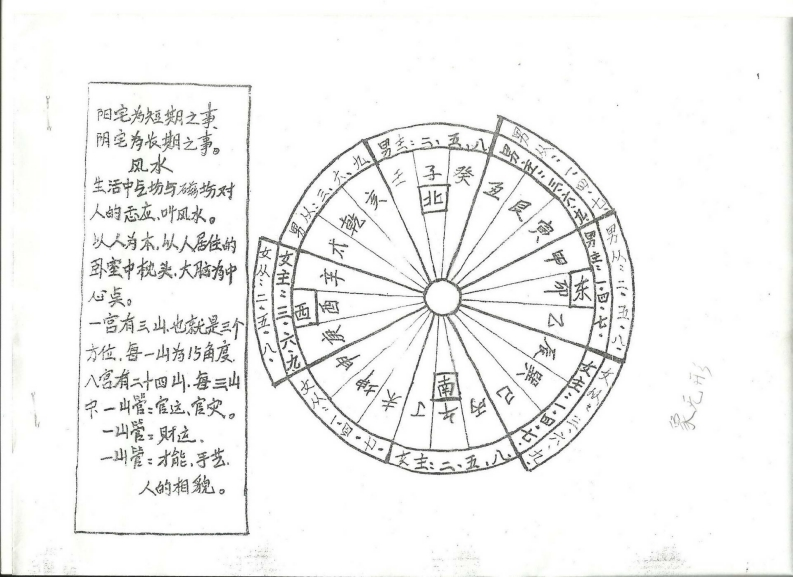 阳宅为短期之事
阴宅为长期之事。
风水
生活中气场与磁场对
人的感应,叫风水。
以人为本,以人居住的
卧室中枕头,大脑为中
心点。
一宫有三山,也就是三个
方位,每一山为15角度
八宫有二十四山,每三山
中一山管:官运、官灾。
一山管:财运、
一山管:才能、手艺、
人的相貌。
男主:二、五、八
男从:一、四、七
男主:三、六、九
男从:二、五、八
男主:一、四、七
女从:三、六、九
女主:一、四、七
女主:二、五、八
女从:一、四、七
女主:三、六、九
女从:二、五、八
男从:三、六、九
壬
子
癸
丑
艮
寅
甲
卯
乙
辰
巽
巳
丙
午
丁
未
坤
申
庚
酉
辛
乾
亥
北
东
南
西